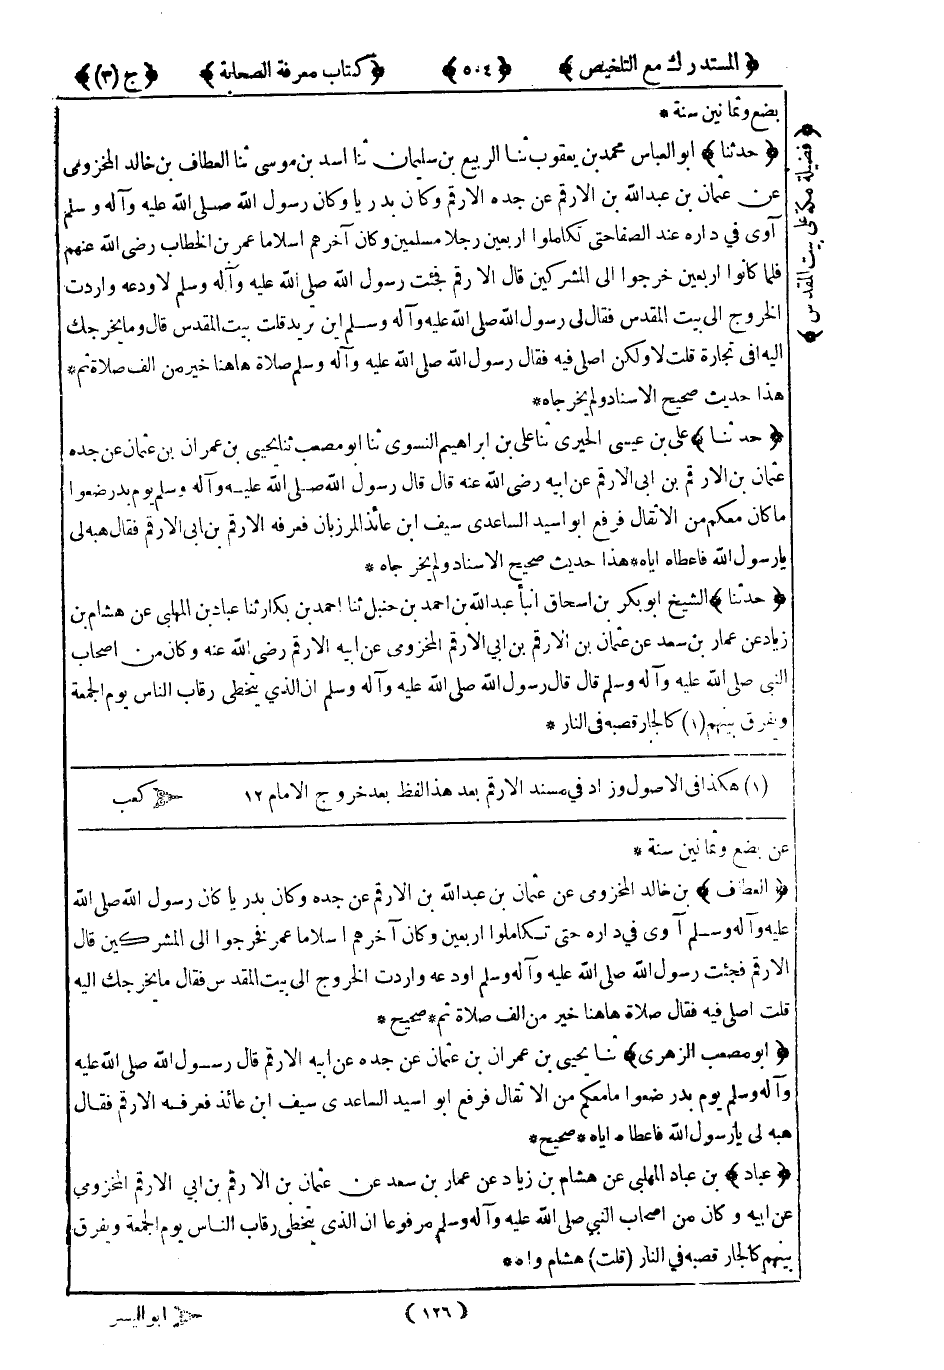 ﴿ المستدرك مع التلخيص ﴾ ﴿ ٥٠٤ ﴾ ﴿ كتاب معرفة الصحابة ﴾ ﴿ ج (٣) ﴾
بضع وثمانين سنة *
﴿ حدثنا ﴾ ابو العباس محمد بن يعقوب ثنا الربيع بن سليمان ثنا اسد بن موسى ثنا العطاف بن خالد المخزومى
عن عثمان بن عبدالله بن الارقم عن جده الارقم وكان بدريا وكان رسول الله صلى الله عليه وآله وسلم
آوى في داره عند الصفاحتى تكاملوا اربعين رجلا مسلمين وكان آخرهم اسلاما عمر بن الخطاب رضى الله عنهم
فلما كانوا اربعين خرجوا الى المشركين قال الارقم فجئت رسول الله صلى الله عليه وآله وسلم لاودعه واردت
الخروج الى بيت المقدس فقال لى رسول الله صلى الله عليه وآله وسلم اين تريد قلت بيت المقدس قال وما يخرجك
اليه افى تجارة قلت لا ولكن اصلى فيه فقال رسول الله صلى الله عليه وآله وسلم صلاة هاهنا خير من الف صلاة ثم *
هذا حديث صحيح الاسناد ولم يخرجاه *
﴿ حدثنا ﴾ على بن عيسى الحيرى ثنا على بن ابراهيم النسوى ثنا ابو مصعب ثنا يحيى بن عمران بن عثمان عن جده
عثمان بن الارقم بن ابى الارقم عن ابيه رضى الله عنه قال قال رسول الله صلى الله عليه وآله وسلم يوم بدر ضعوا
ما كان معكم من الاثقال فرفع ابو اسيد الساعدى سيف ابن عائذ المرزبان فعرفه الارقم بن ابى الارقم فقال هبه لى
يا رسول الله فاعطاه اياه * هذا حديث صحيح الاسناد ولم يخرجاه *
﴿ حدثنا ﴾ الشيخ ابو بكر بن اسحاق انبأ عبدالله بن احمد بن حنبل ثنا احمد بن بكار ثنا عباد بن المهلبي عن هشام بن
زياد عن عمار بن سعد عن عثمان بن الارقم بن ابي الارقم المخزومى عن ابيه الارقم رضى الله عنه وكان من اصحاب
النبى صلى الله عليه وآله وسلم قال قال رسول الله صلى الله عليه وآله وسلم ان الذي يتخطى رقاب الناس يوم الجمعة
ويفرق بينهم (١) كالجار قصبه فى النار *
﴿ فضيلة مكة على بيت المقدس ﴾
(١) هكذا فى الاصول وزاد في مسند الارقم بعد هذا لفظ بعد خروج الامام ١٢
كعب
عن بضع وثمانين سنة *
﴿ العطاف ﴾ بن خالد المخزومى عن عثمان بن عبدالله بن الارقم عن جده وكان بدريا كان رسول الله صلى الله
عليه وآله وسلم آوى في داره حتى تكاملوا اربعين وكان آخرهم اسلاما عمر فخرجوا الى المشركين قال
الارقم فجئت رسول الله صلى الله عليه وآله وسلم اودعه واردت الخروج الى بيت المقدس فقال ما يخرجك اليه
قلت اصلى فيه فقال صلاة هاهنا خير من الف صلاة ثم * صحيح *
﴿ ابو مصعب الزهرى ﴾ ثنا يحيى بن عمران بن عثمان عن جده عن ابيه الارقم قال رسول الله صلى الله عليه
وآله وسلم يوم بدر ضعوا ما معكم من الاثقال فرفع ابو اسيد الساعدى سيف ابن عائذ فعرفه الارقم فقال
هبه لى يا رسول الله فاعطاه اياه * صحيح *
﴿ عباد ﴾ بن عباد المهلبي عن هشام بن زياد عن عمار بن سعد عن عثمان بن الارقم بن ابي الارقم المخزومي
عن ابيه وكان من اصحاب النبي صلى الله عليه وآله وسلم مرفوعا ان الذى يتخطى رقاب الناس يوم الجمعة ويفرق
بينهم كالجار قصبه في النار (قلت) هشام واه *
(١٢٦)
ابو اليسر